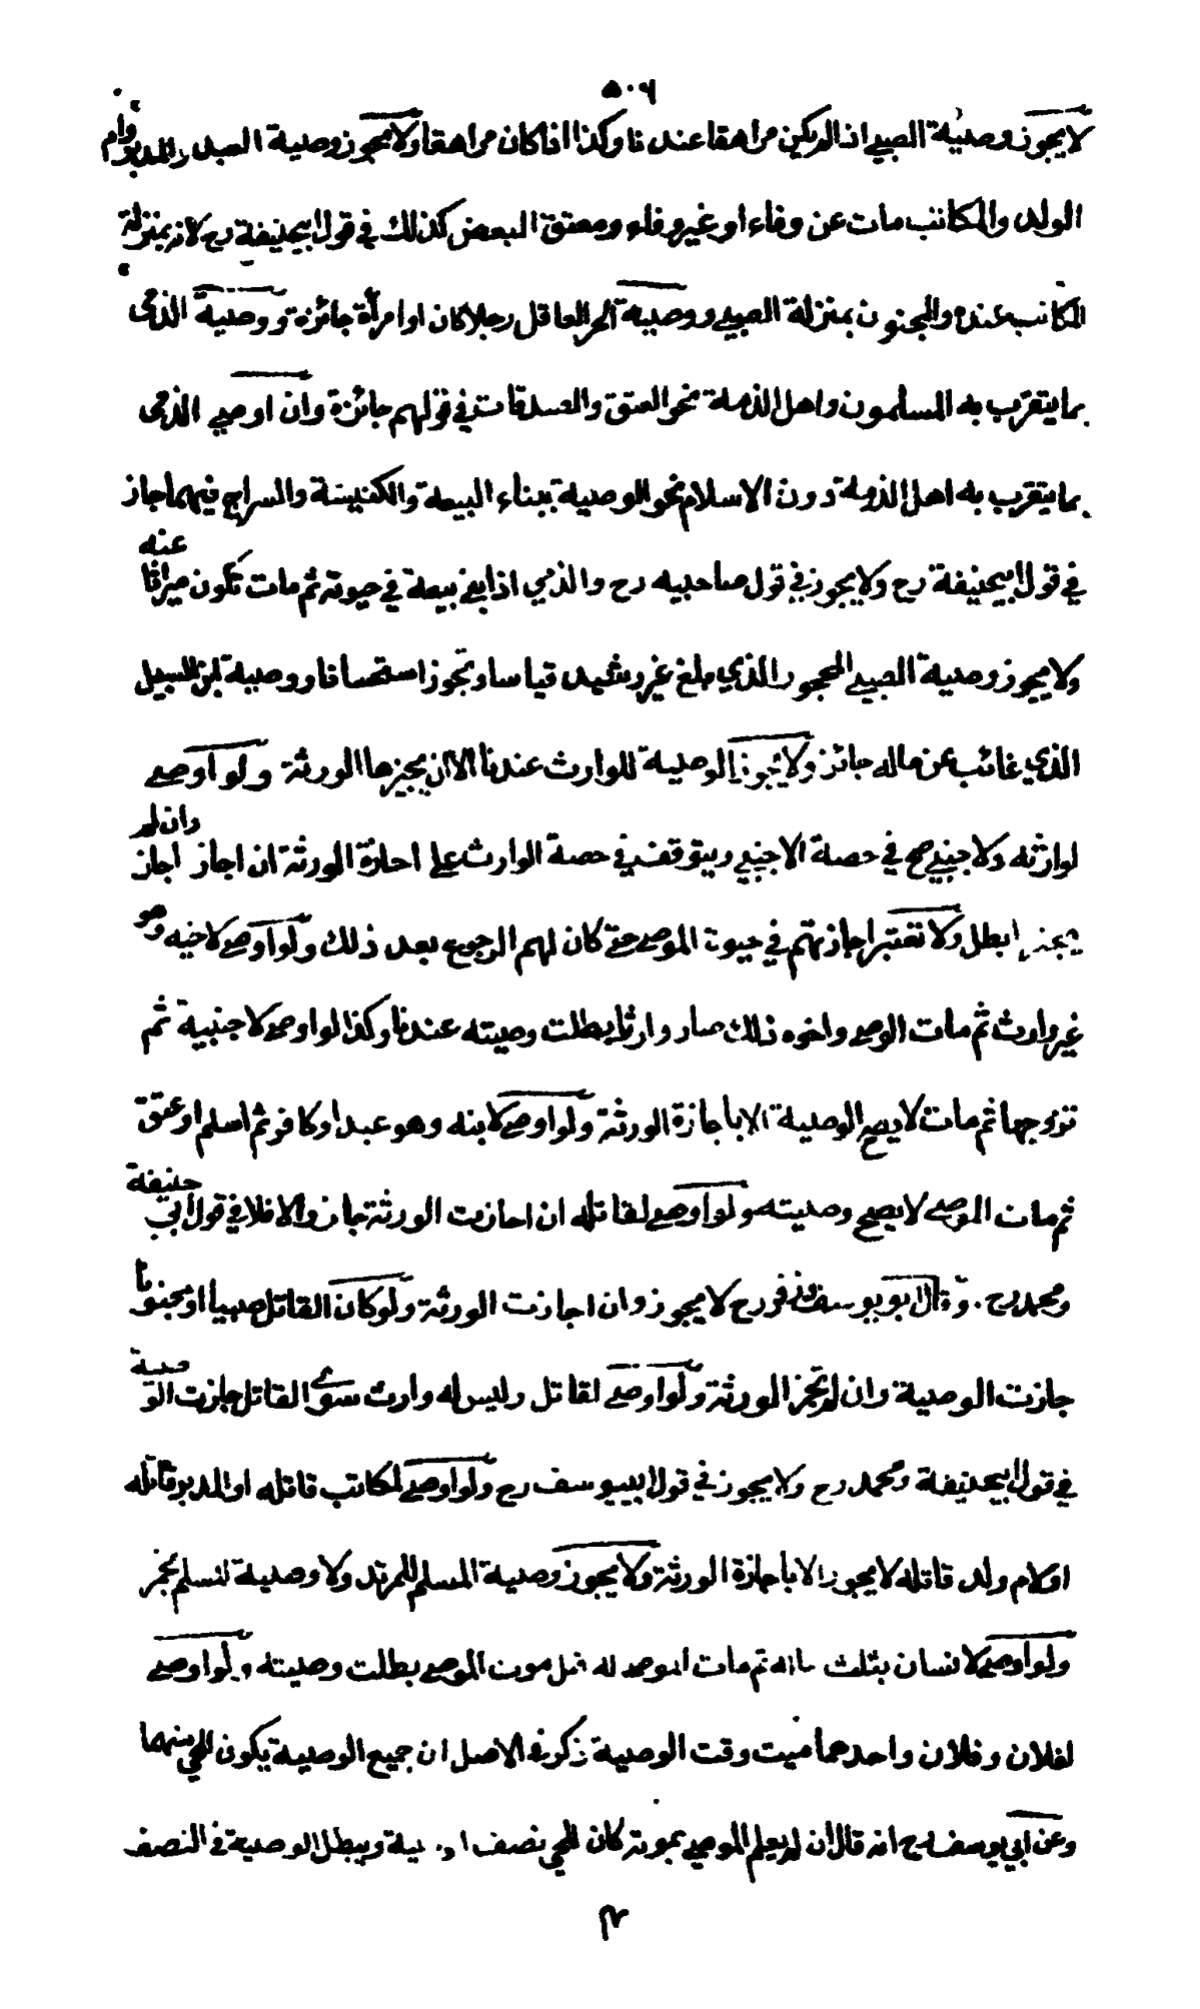 ٥٠٦
لا يجوز وصية الصبي اذا لم يكن مراهقا عندنا وكذا اذا كان مراهقا ولا يجوز وصية العبد والمدبر وام
الولد والمكاتب مات عن وفاء او غير وفاء ومعتق البعض كذلك في قول ابيحنيفة رح لانه بمنزلة
المكاتب عنده والمجنون بمنزلة الصبي ووصية الحر العاقل رجلا كان او امرأة جائزة ووصية الذمي
بما يتقرب به المسلمون واهل الذمة نحو العتق والصدقات في قولهم جائزة وان اوصي الذمي
بما يتقرب به اهل الذمة دون الاسلام نحو الوصية ببناء البيعة والكنيسة والسراج فيهما جاز
في قول ابيحنيفة رح ولا يجوز في قول صاحبيه رح والذمي اذا بني بيعة في حيوته ثم مات تكون ميراثا عنه
ولا يجوز وصية الصبي المحجور الذي بلغ غير رشيد قياسا وتجوز استحسانا ووصية ابن السبيل
الذي غائب عن ماله جائز ولا يجوز الوصية للوارث عندنا الا ان يجيزها الورثة ولو اوصي
لوارثه ولاجنبي صح في حصة الاجنبي ويتوقف في حصة الوارث علي اجازة الورثة ان اجاز اجاز وان لم
يجز ابطل ولا تعتبر اجازتهم في حيوة الموصي حتي كان لهم الرجوع بعد ذلك ولو اوصي لاخيه وهو
غير وارث ثم مات الوصي واخوه ذلك صار وارثا بطلت وصيته عندنا وكذا لو اوصي لاجنبية ثم
تزوجها ثم مات لا يصح الوصية الا باجازة الورثة ولو اوصي لابنه وهو عبد او كافر ثم اسلم او عتق
ثم مات الموصي لا يصح وصيته ولو اوصي لقاتله ان اجازت الورثة جاز والا فلا في قول ابي حنيفة
ومحمد رح. وقال ابو يوسف وزفر رح لا يجوز وان اجازت الورثة ولو كان القاتل صبيا او مجنونا
جازت الوصية وان لم تجز الورثة ولو اوصي لقاتل وليس له وارث سوي القاتل جازت الوصية
في قول ابيحنيفة ومحمد رح ولا يجوز في قول ابييوسف رح ولو اوصي لمكاتب قاتله او المدبر قاتله
او لام ولد قاتله لا يجوز الا باجازة الورثة ولا يجوز وصية المسلم للمرتد ولا وصية لمسلم
ولو اوصي لانسان بثلث ماله ثم مات الموصي له قبل موت الموصي بطلت وصيته ولو اوصي
لفلان وفلان واحدهما ميت وقت الوصية ذكر في الاصل ان جميع الوصية يكون للحي منهما
وعن ابي يوسف رح انه قال ان لم يعلم الموصي بموته كان للحي نصف الوصية ويبطل الوصية في النصف